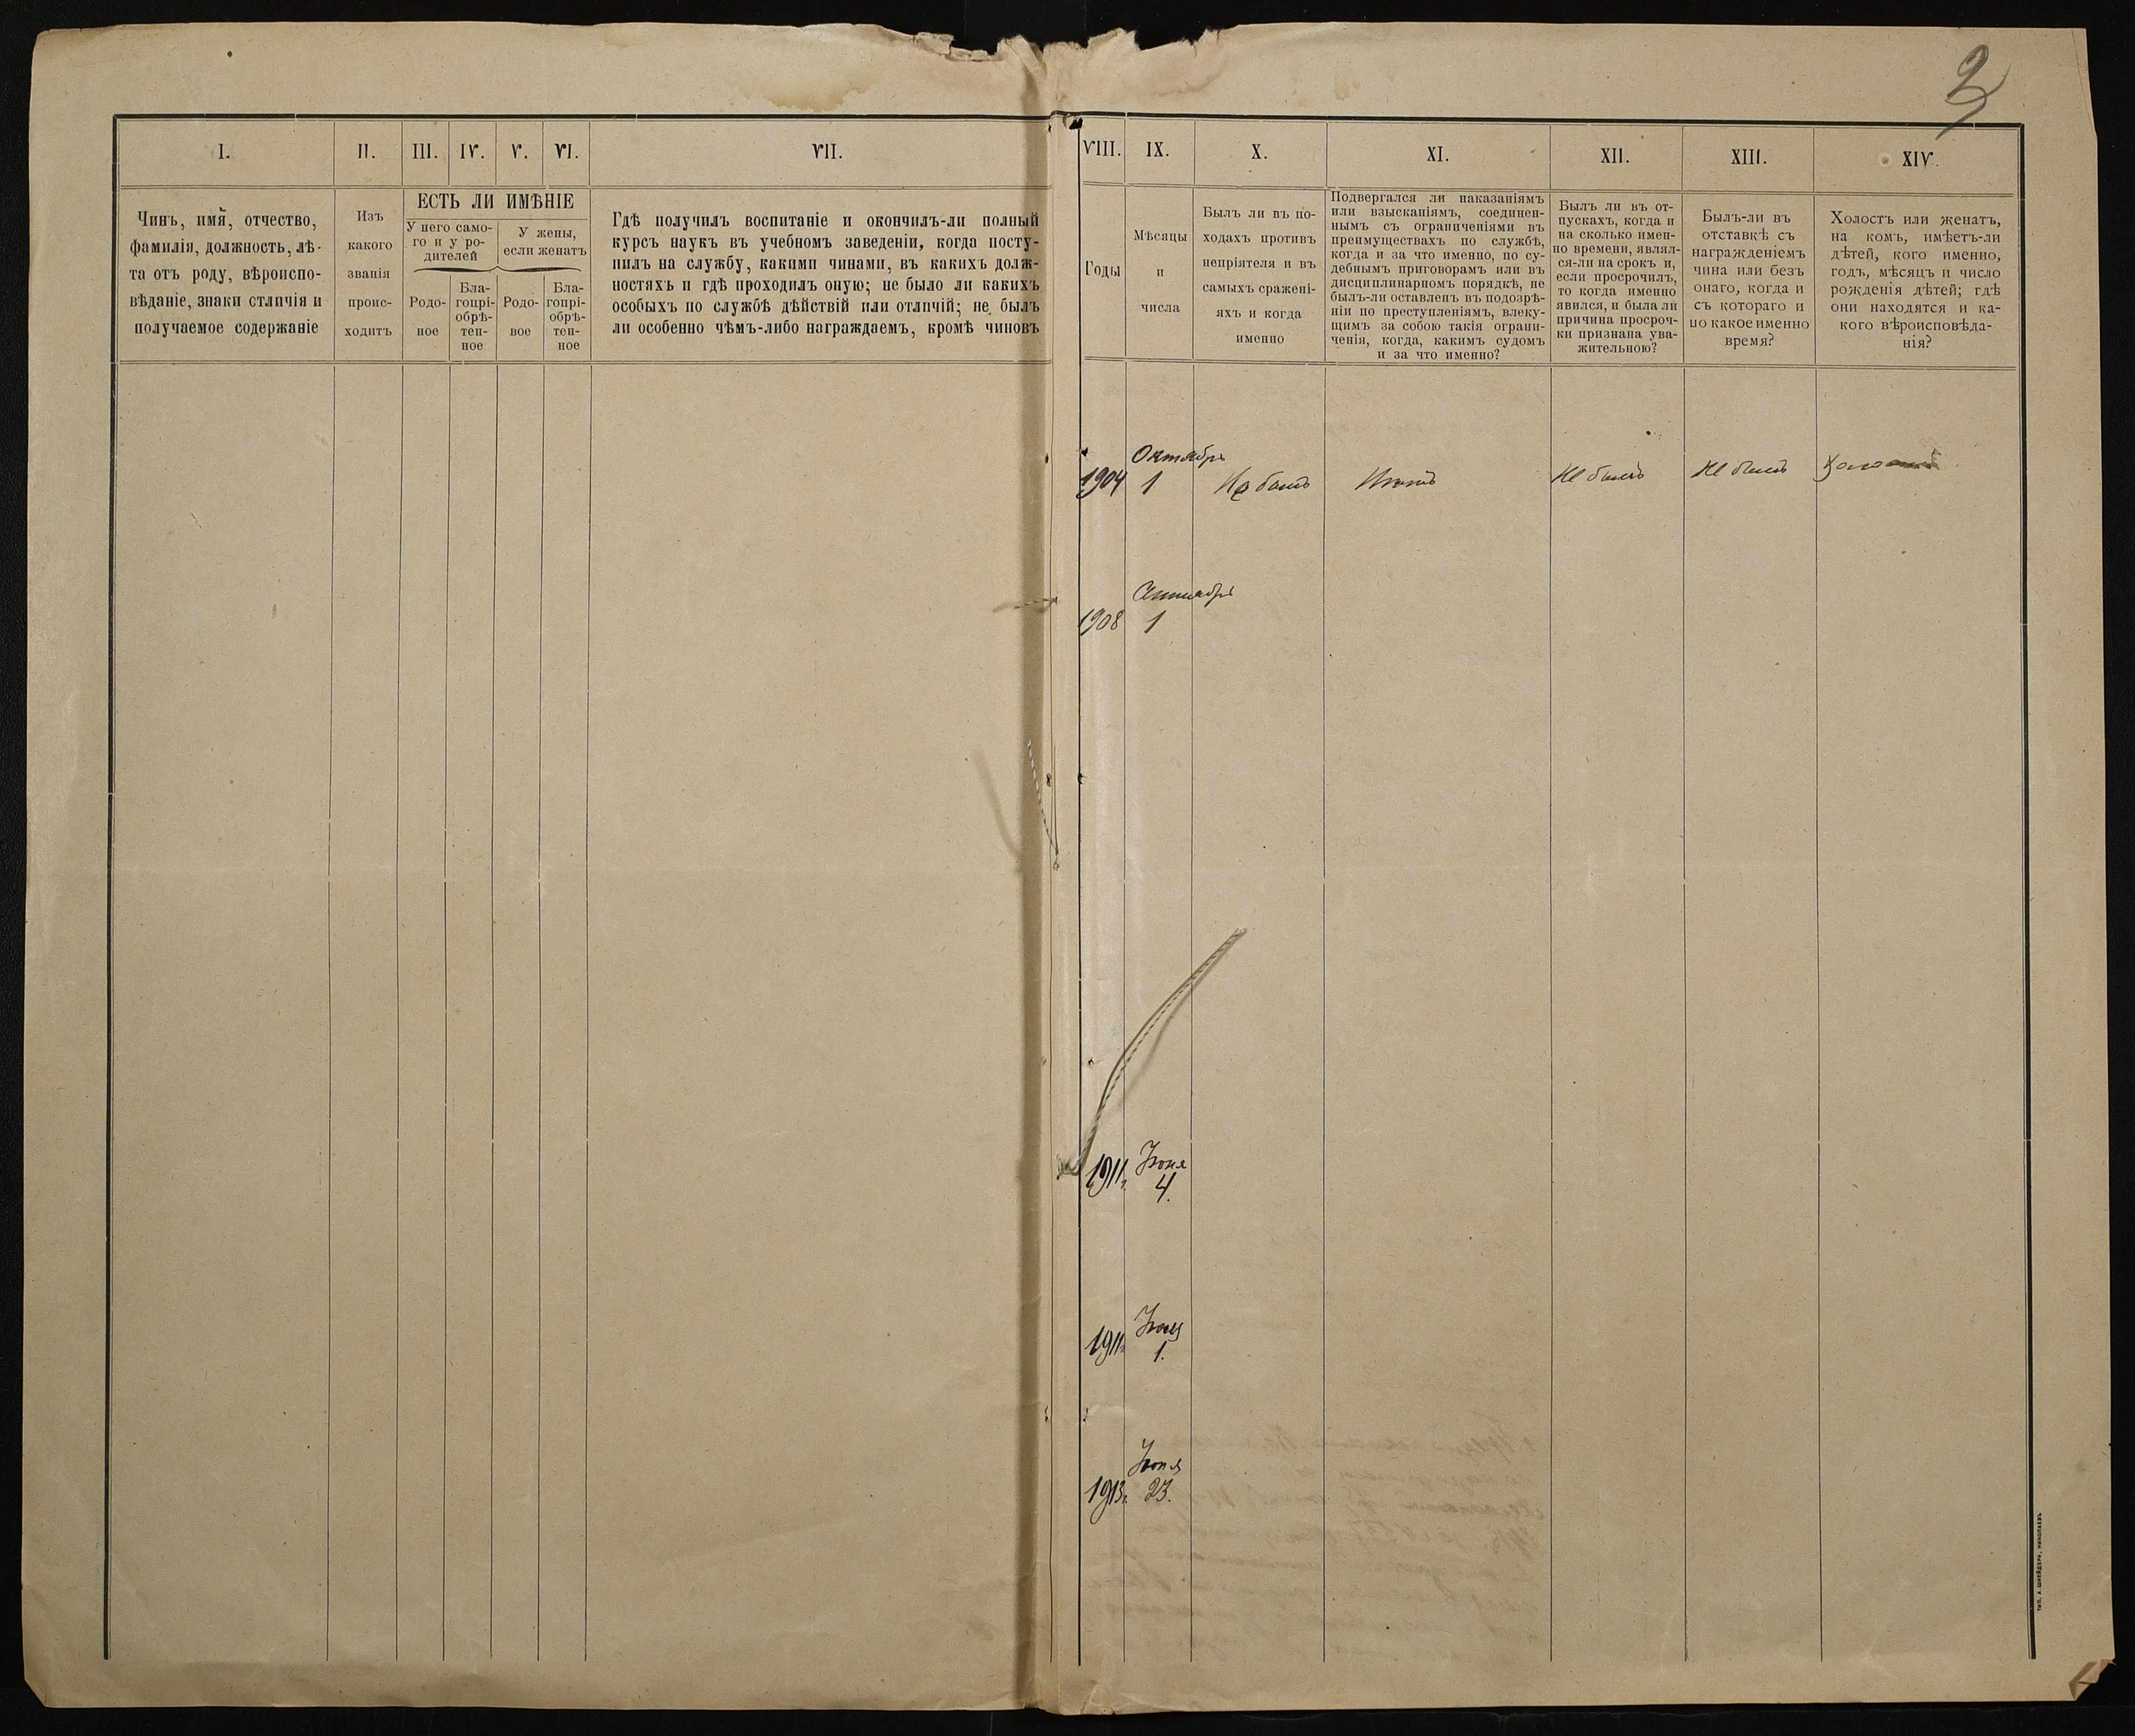 2
I. II. III. IV. V. VI. VII.
Чинъ, имя, отчество,
фамилія, должность, лѣ-
та отъ роду, вѣроиспо-
вѣданіе, знаки отличія и
получаемое содержаніе
Изъ
какого
званія
проис-
ходитъ
ЕСТЬ ЛИ ИМѢНІЕ
У него само-
го и у ро-
дителей
У жены,
если женатъ
Родо-
вое
Бла-
гопрі-
обрѣ-
тен-
ное
Родо-
вое
Бла-
гопрі-
обрѣ-
тен-
ное
Гдѣ получилъ воспитаніе и окончилъ-ли полный
курсъ наукъ въ учебномъ заведеніи, когда посту-
пилъ на службу, какими чинами, въ какихъ долж-
ностяхъ и гдѣ проходилъ оную; не было ли какихъ
особыхъ по службѣ дѣйствій или отличій; не былъ
ли особенно чѣмъ-либо награждаемъ, кромѣ чиновъ
VIII. IX. X. XI. XII. XIII. XIV.
Годы
Мѣсяцы
и
числа
Былъ ли въ по-
ходахъ противъ
непріятеля и въ
самыхъ сражені-
яхъ и когда
именно
Подвергался ли наказаніямъ
или взысканіямъ, соединен-
нымъ съ ограниченіями въ
преимуществахъ по службѣ,
когда и за что именно, по су-
дебнымъ приговорамъ или въ
дисциплинарномъ порядкѣ, не
былъ-ли оставленъ въ подозрѣ-
ніи по преступленіямъ, влеку-
щимъ за собою такія ограни-
ченія, когда, какимъ судомъ
и за что именно?
Былъ ли въ от-
пускахъ, когда и
на сколько имен-
но времени, являл-
ся-ли на срокъ и,
если просрочилъ,
то когда именно
явился, и была ли
причина просроч-
ки признана ува-
жительною?
Былъ-ли въ
отставкѣ съ
награжденіемъ
чина или безъ
онаго, когда и
съ котораго и
по какое именно
время?
Холостъ или женатъ,
на комъ, имѣетъ-ли
дѣтей, кого именно,
годъ, мѣсяцъ и число
рожденія дѣтей; гдѣ
они находятся и ка-
кого вѣроисповѣда-
нія?
Октября
1904 1 Не былъ Не былъ Не былъ Холостъ
Сентября
1908 1
Іюня
1911г. 4.
1911г. 1.
1913г. 23.
ТИП. А. ШНЕЙДЕРА, НИКОЛАЕВЪ